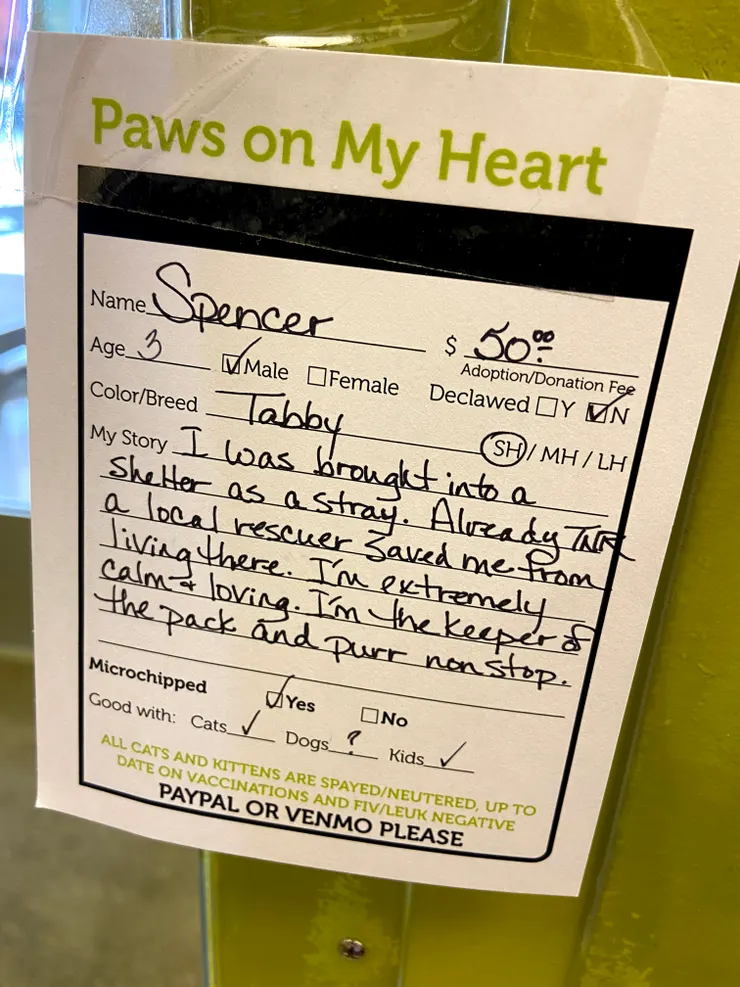 Paws on My Heart
Name Spencer
$ 50.00
Adoption/Donation Fee
Age 3 ☑Male ☐Female Declawed ☐Y ☑N
Color/Breed Tabby
SH / MH / LH
My Story I was brought into a
shelter as a stray. Already TNR
a local rescuer saved me from
living there. I'm extremely
calm + loving. I'm the keeper of
the pack and purr non stop.
Microchipped ☑Yes ☐No
Good with: Cats ✓ Dogs ? Kids ✓
ALL CATS AND KITTENS ARE SPAYED/NEUTERED, UP TO
DATE ON VACCINATIONS AND FIV/LEUK NEGATIVE
PAYPAL OR VENMO PLEASE